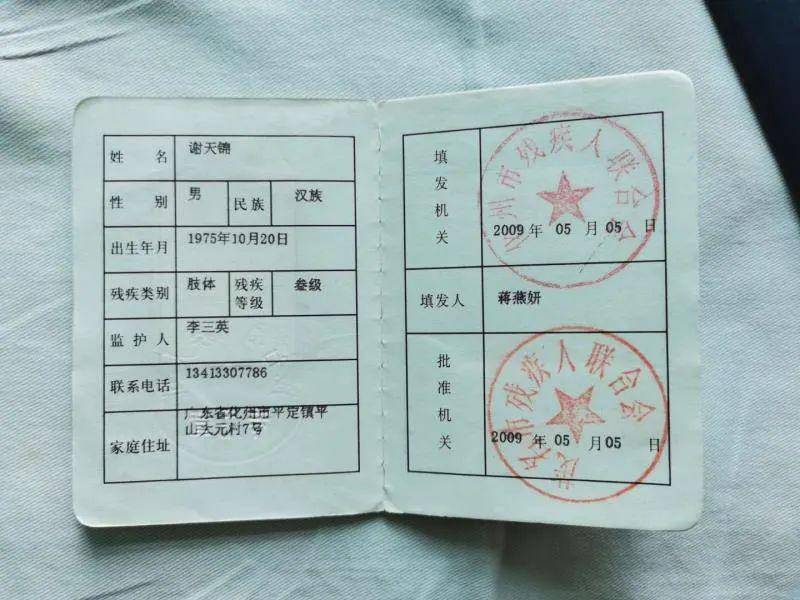 姓名 谢天锦
性别 男 民族 汉族
出生年月 1975年10月20日
残疾类别 肢体 残疾等级 叁级
监护人 李三英
联系电话 13413307786
家庭住址 广东省化州市平定镇平
山大元村7号
填发机关 化州市残疾人联合会
2009年05月05日
填发人 蒋燕妍
批准机关 茂名市残疾人联合会
2009年05月05日